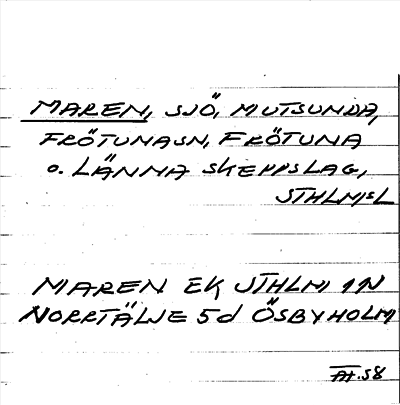 MAREN, SJÖ, MUTSUNDA,
FRÖTUNASN, FRÖTUNA
o. LÄNNA SKEPPSLAG,
STHLMSL
MAREN EK STHLM 1N
NORRTÄLJE 5d ÖSBYHOLM
AH.58